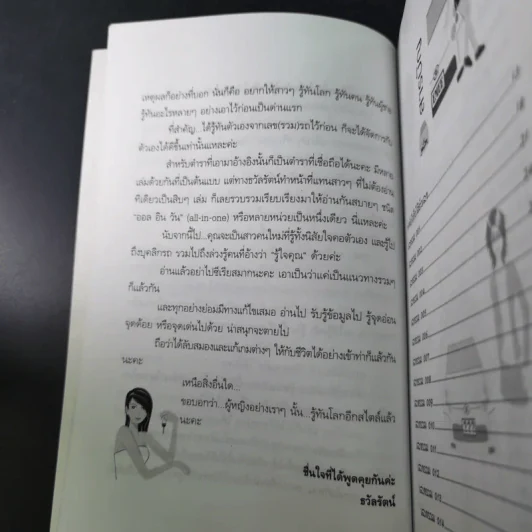 เหตุผลก็อย่างที่บอก นั่นก็คือ อยากให้สาวๆ รู้ทันโลก รู้ทันคน รู้ทันผู้ชาย
รู้ทันอะไรหลายๆ อย่างเอาไว้ก่อนเป็นด่านแรก
ที่สำคัญ...ได้รู้ทันตัวเองจากเลข(รวม)รถไว้ก่อน ก็จะได้จัดการกับ
ตัวเองได้ดีขึ้นเท่านั้นแหละค่ะ
สำหรับตำราที่เอามาอ้างอิงนั้นก็เป็นตำราที่เชื่อถือได้นะคะ มีหลาย
เล่มด้วยกันที่เป็นต้นแบบ แต่ทางธวัลรัตน์ทำหน้าที่แทนสาวๆ ที่ไม่ต้องอ่าน
ทีเดียวเป็นสิบๆ เล่ม ก็เลยรวบรวมเรียบเรียงมาให้อ่านกันสบายๆ ชนิด
"ออล อิน วัน" (all-in-one) หรือหลายหน่วยเป็นหนึ่งเดียว นี่แหละค่ะ
นับจากนี้ไป...คุณจะเป็นสาวคนใหม่ที่รู้ทั้งนิสัยใจคอตัวเอง และรู้ไป
ถึงบุคลิกรถ รวมไปถึงล่วงรู้คนที่อ้างว่า "รู้ใจคุณ" ด้วยค่ะ
อ่านแล้วอย่าไปซีเรียสมากนะคะ เอาเป็นว่าแค่เป็นแนวทางรวมๆ
ก็แล้วกัน
และทุกอย่างย่อมมีทางแก้ไขเสมอ อ่านไป รับรู้ข้อมูลไป รู้จุดอ่อน
จุดด้อย หรือจุดเด่นไปด้วย น่าสนุกจะตายไป
ถือว่าได้ลับสมองและแก้เกมต่างๆ ให้กับชีวิตได้อย่างเข้าท่าก็แล้วกัน
นะคะ
เหนือสิ่งอื่นใด...
ขอบอกว่า...ผู้หญิงอย่างเราๆ นั้น...รู้ทันโลกอีกสไตล์แล้ว
นะคะ
ชื่นใจที่ได้พูดคุยกันค่ะ
ธวัลรัตน์